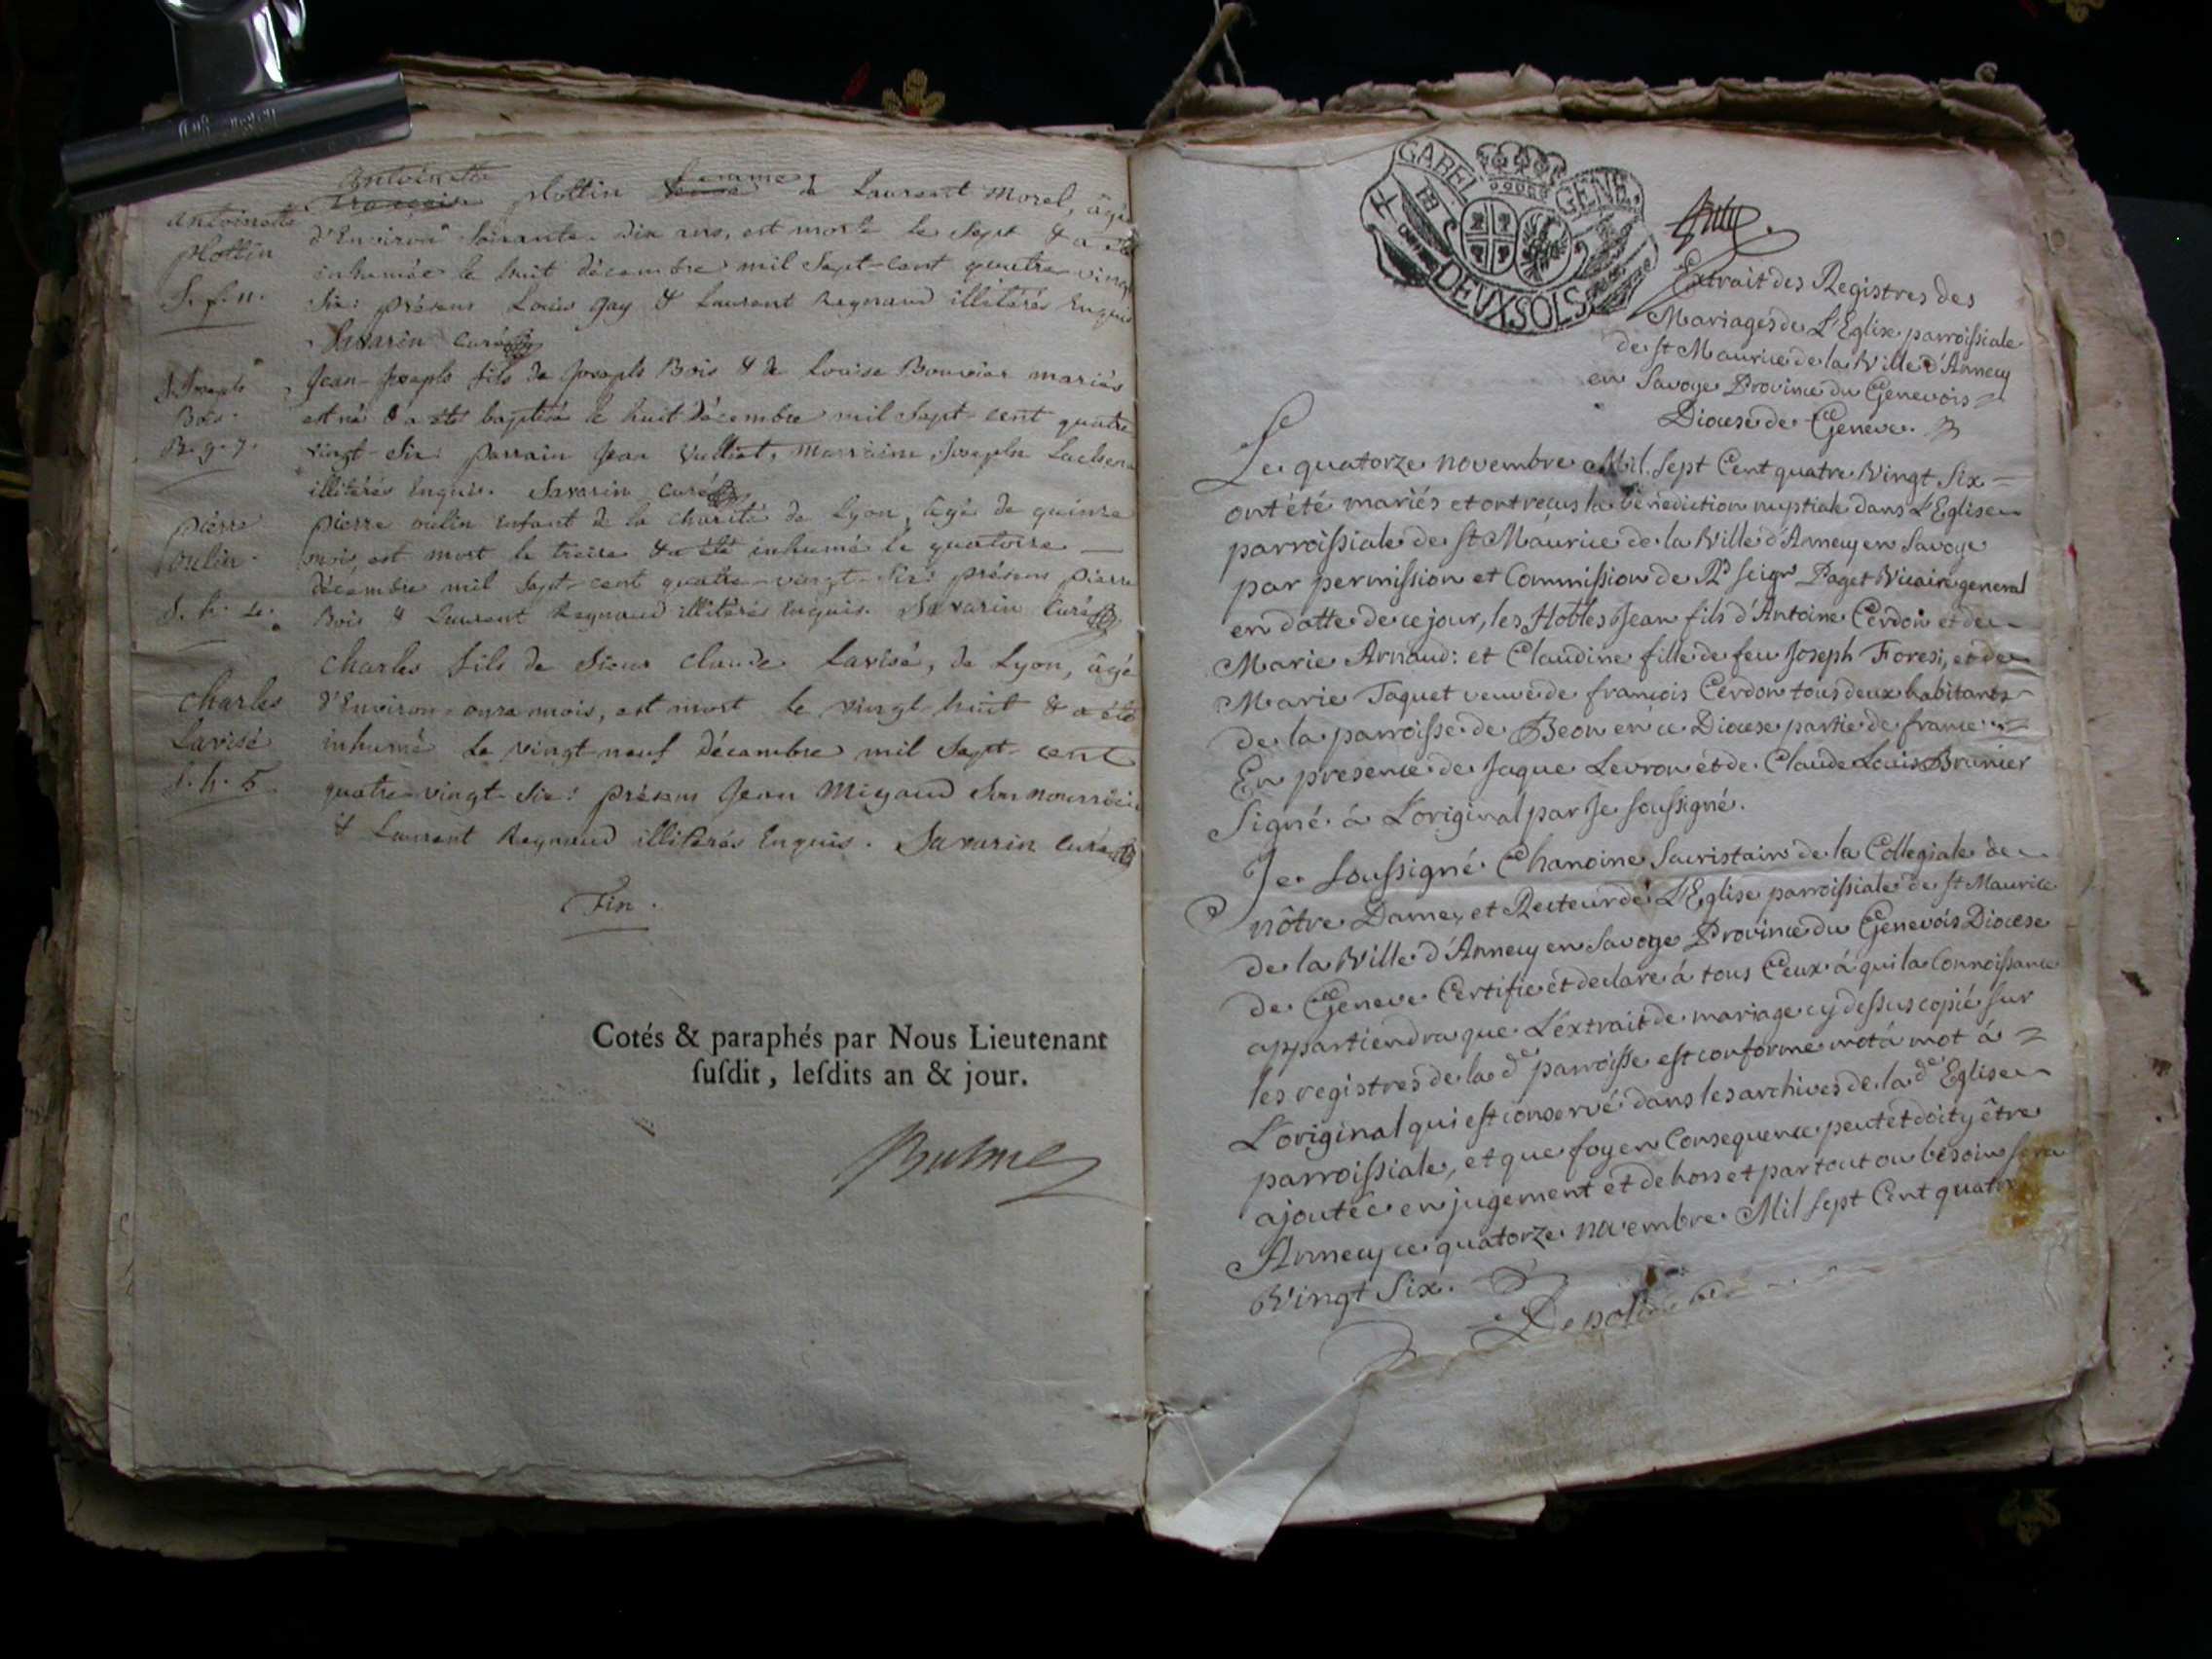 Antoinette
françoise plottin veuve femme de Laurent Morel, âgée
Antoinette
plottin
S. f. n.
d'Environ soixante-dix ans, est morte le sept & a été
inhumée le huit décembre mil sept-cent quatre-vingt
six: présens Louis Gay & Laurent Reynaud illitérés Enquis
Savarin curé
J. Joseph
Bois.
B. g. 7.
Jean-Joseph fils de Joseph Bois & de Louise Bouvier mariés
est né & a été baptisé le huit décembre mil sept-cent quatre
vingt-six: parrain Jean Vulliot, marraine Josephe
illitérés Enquis. Savarin curé
pierre
oulin.
S. h. 4.
pierre oulin enfant de la charité de Lyon, âgé de quinze
mois, est mort le treize & a été inhumé le quatorze
décembre mil sept-cent quatre-vingt-six: présens pierre
Bois & Laurent Reynaud illitérés Enquis. Savarin curé
Charles
Lavisé
S. h. 5.
Charles fils de sieur Claude Lavisé, de Lyon, âgé
d'Environ onze mois, est mort le vingt-huit & a été
inhumé le vingt-neuf décembre mil sept-cent
quatre-vingt-six: présens Jean Migaud son nourricier
& Laurent Reynaud illitérés Enquis. Savarin curé
Fin.
Cotés & paraphés par Nous Lieutenant
ſuſdit, leſdits an & jour.
GABEL GENE.
DEUX SOLS
Extrait des Registres des
Mariages de L'Eglise parroissiale
de st Maurice de la Ville d'Annecy
en Savoye Province du Genevois
Diocese de Geneve.
Le quatorze novembre Mil sept Cent quatre Vingt Six
ont été mariés et ont reçus la bénédiction nuptiale dans L'Eglise
parroissiale de st Maurice de la Ville d'Annecy en Savoye
par permission et Commission de Rd seigr Paget Vicaire general
en datte de ce jour, les Nobles Jean fils d'Antoine Cerdon et de
Marie Arnaud: et Claudine fille de feu Joseph Foresi, et de
Marie Jaquet veuve de françois Cerdon tous deux habitants
de la parroisse de Beon en ce Diocese partie de france
En presence de Jaque Levron et de Claude Louis Brunier
Signé à L'original par Je soussigné.
Je soussigné Chanoine Sacristain de la Collegiale de
nôtre Dame, et Recteur de L'Eglise parroissiale de st Maurice
de la Ville d'Annecy en Savoye Province du Genevois Diocese
de Geneve Certifie et declare à tous Ceux à qui la Connoissance
appartiendra que L'extrait de mariage cy dessus copié sur
les registres de la de parroisse est conforme mot à mot à
L'original qui est conservé dans les archives de la de Eglise
parroissiale, et que foy en Consequence peut et doit y être
ajoutée en jugement et dehors et par tout ou besoin sera
Annecy ce quatorze novembre Mil sept Cent quatre
Vingt Six.